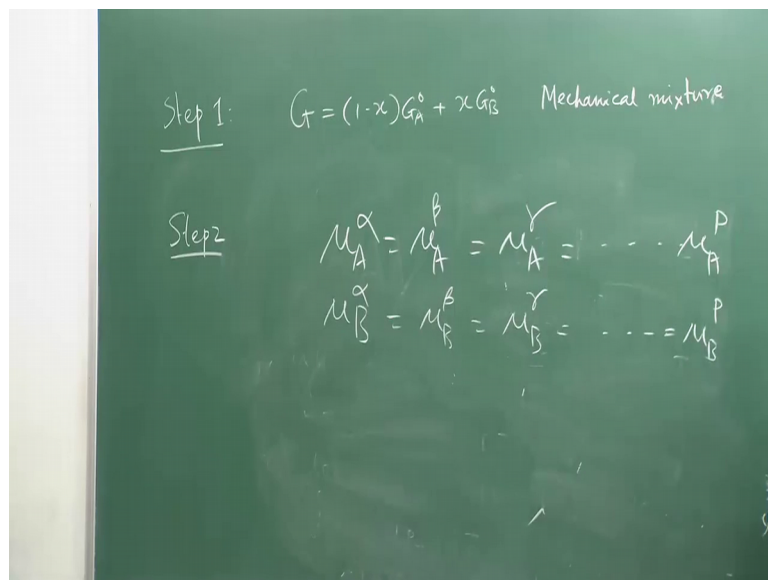 Step 1: G = (1-x)G°A + xG°B Mechanical mixture
Step2 μ_A^α = μ_A^β = μ_A^γ = ..... μ_A^P
μ_B^α = μ_B^β = μ_B^γ = ..... = μ_B^P